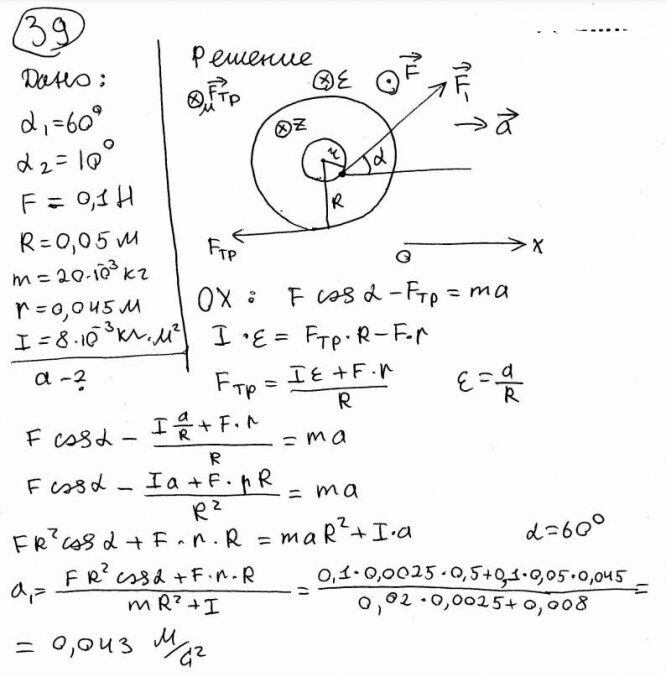 39
Дано:
α₁=60°
α₂=10°
F=0,1Н
R=0,05м
m=20·10⁻³кг
r=0,045м
I=8·10⁻³кг·м²
a-?
Решение
M⃗Fтр
ε
M⃗F
F⃗₁
a⃗
z
r
α
R
Fтр
O
x
OX: F cosα-Fтр=ma
I·ε=Fтр·R-F·r
Fтр=(Iε+F·r)/R ε=a/R
F cosα-(I a/R+F·r)/R=ma
F cosα-(Ia+F·rR)/R²=ma
FR²cosα+F·r·R=maR²+I·a α=60°
a₁=(FR²cosα+F·r·R)/(mR²+I)=(0,1·0,0025·0,5+0,1·0,05·0,045)/(0,02·0,0025+0,008)=
=0,043 м/с²